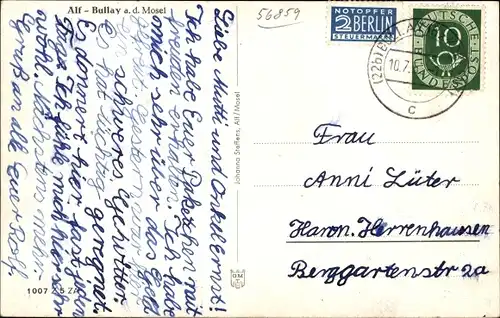 Alf - Bullay a. d. Mosel
56859
NOTOPFER
2 BERLIN
STEUERMARKE
DEUTSCHE
10
BUNDESPOST
(22b) BULLAY
10.7.
c
Liebe Mutti und Onkel Ernst!
Ich habe Euer Paketchen mit
Freuden erhalten. Ich habe
mich sehr über das Geld
gefreut. Gestern war hier
ein schweres Gewitter
es hat tüchtig geregnet.
Es donnert hier fast jeden
Tag. Ich fühle mich hier sehr
wohl. Nächstens mehr.
Gruß an alle Euer Rolf.
Johanna Steffens, Alf/Mosel
1007 Z 5 Z/A
Frau
Anni Lüter
Hann. Herrenhausen
Berggartenstr 2a